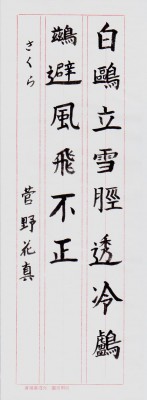 白鷗立雪脛透冷鸕
鷀避風飛不正
さくら 菅野花真